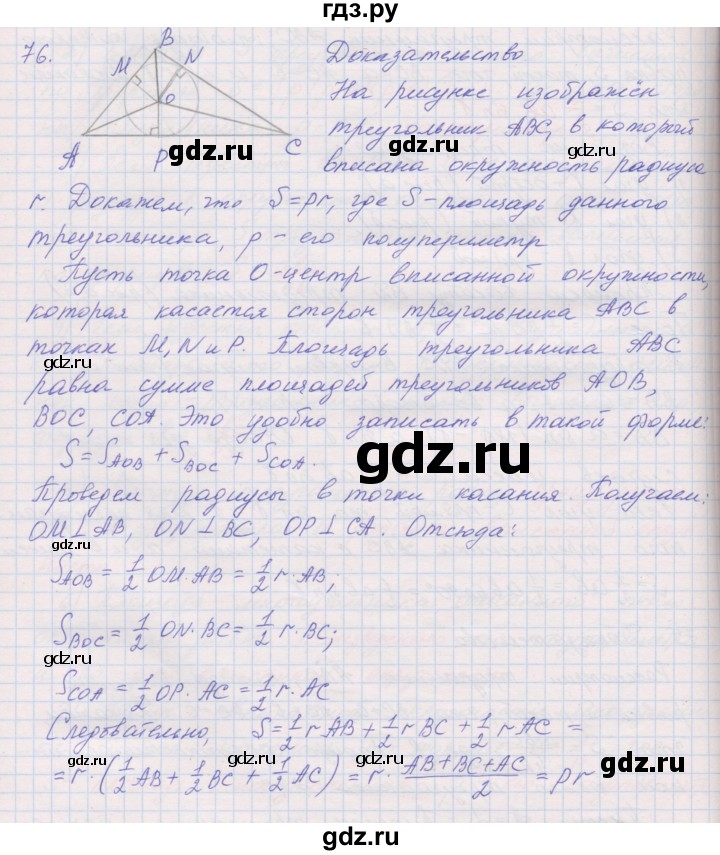 гдз.ру
76.
B
M
N
O
A
P
C
gdz.ru
gdz.ru
Доказательство
На рисунке изображён
gdz.ru
треугольник ABC, в который
gdz.ru
вписана окружность радиуса
r. Докажем, что S=pr, где S-площадь данного
gdz.ru
gdz.ru
треугольника, p - его полупериметр
Пусть точка O-центр вписанной окружности,
которая касается сторон треугольника ABC в
точках M, N и P. Площадь треугольника ABC
gdz.ru
gdz.ru
равна сумме площадей треугольников AOB,
BOC, COA. Это удобно записать в такой форме:
S = S_AOB + S_BOC + S_COA.
gdz.ru
Проведем радиусы в точки касания. Получаем:
OM⊥AB, ON⊥BC, OP⊥CA. Отсюда:
gdz.ru
gdz.ru
S_AOB = 1/2 OM·AB = 1/2 r·AB;
S_BOC = 1/2 ON·BC = 1/2 r·BC;
gdz.ru
gdz.ru
S_COA = 1/2 OP·AC = 1/2 r·AC
Следовательно, S = 1/2 rAB + 1/2 rBC + 1/2 rAC =
gdz.ru
gdz.ru
gdz.ru
gdz.ru
= r·(1/2 AB + 1/2 BC + 1/2 AC) = r·(AB+BC+AC)/2 = pr
gdz.ru